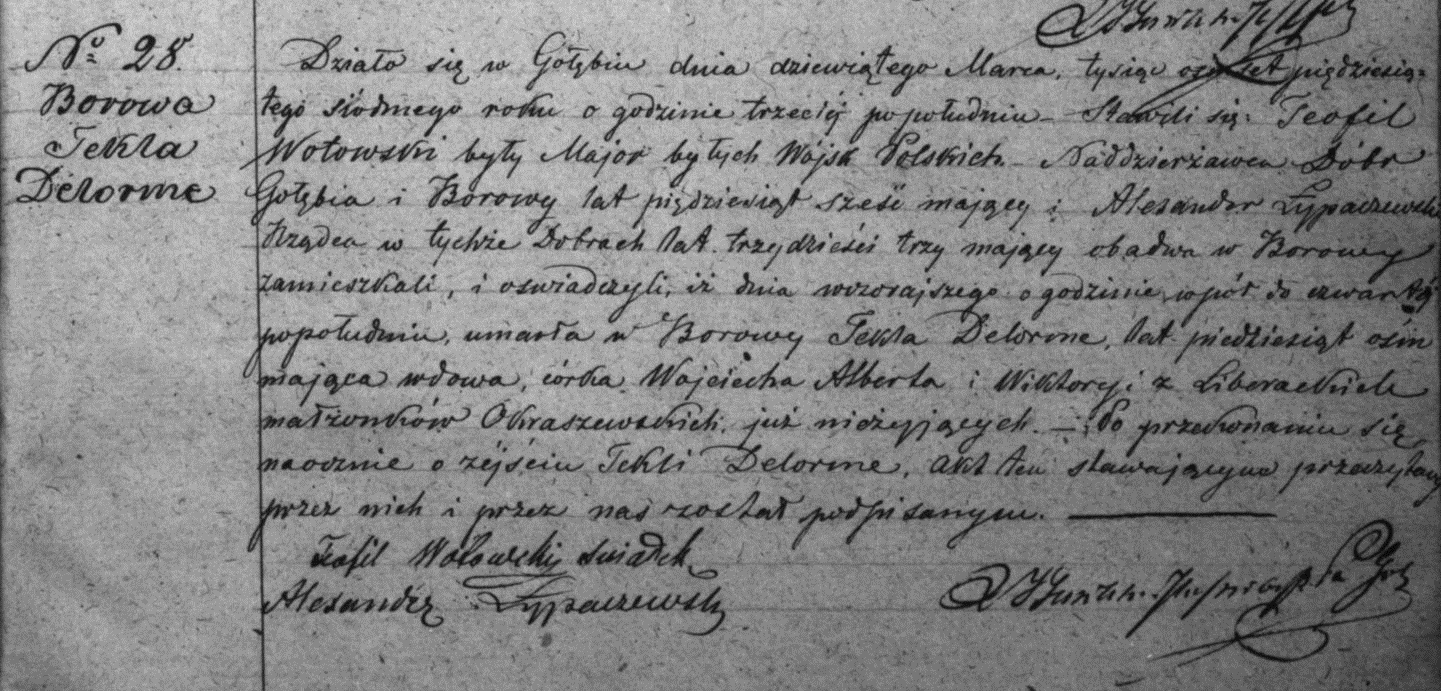 No 28.
Borowa
Tekla
Delorme
Działo się w Gołębiu dnia dziewiątego Marca, tysiąc ośmset pięćdziesią=
tego siódmego roku o godzinie trzeciej popołudniu – Stawili się: Teofil
Wołowski były Major byłych Wojsk Polskich – Naddzierżawca Dóbr
Gołębia i Borowy lat pięćdziesiąt sześć mający i Alesander Łypaczewski
Rządca w tychże Dobrach lat trzydzieści trzy mający obadwa w Borowy
zamieszkali, i oświadczyli, iż dnia wczorajszego o godzinie wpół do czwartéj
popołudniu, umarła w Borowy Tekla Delorme, lat piędziesiąt ośm
mająca wdowa, córka Wojciecha Alberta i Wiktoryi z Liberackich
małżonków Okraszewskich, już nieżyjących. – Po przekonaniu się
naocznie o zejściu Tekli Delorme, akt ten stawającym przeczytany
przez nich i przez nas został podpisanym.
Teofil Wołowski świadek
Alesander Łypaczewski